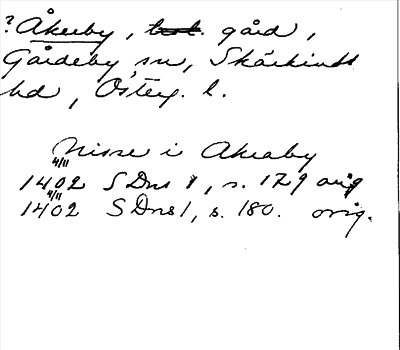 ?Åkerby, gård,
Gårdeby sn, Skärkinds
hd, Österg. l.
Nisse i Akraby
4/11
1402 SDns 1, s. 179 orig
4/11
1402 SDns1, s. 180. orig.